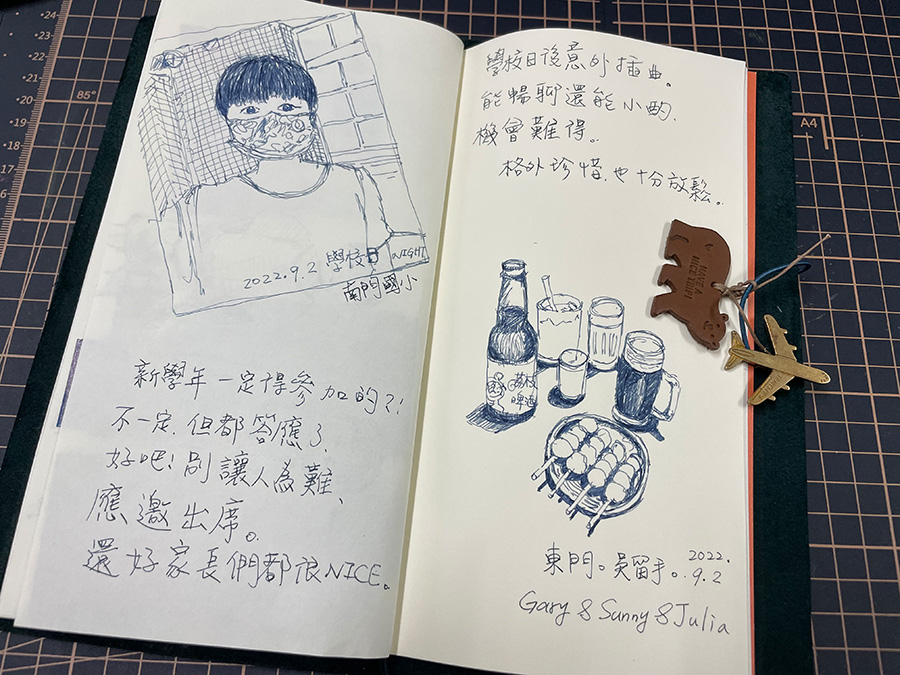 2022.9.2 學校日
NIGHT
南門國小
新學年一定得參加的?!
不一定,但都答應了,
好吧!別讓人為難、
應邀出席。
還好家長們都很NICE。
學校日後意外插曲。
能暢聊還能小酌,
機會難得。
格外珍惜,也十分放鬆。
荔枝
啤酒
東門。吳留手。2022.
9.2
Gary & Sunny & Julia
HAVE A
NICE TRIP!
A4
85°
24
23
22
21
20
19
18
17